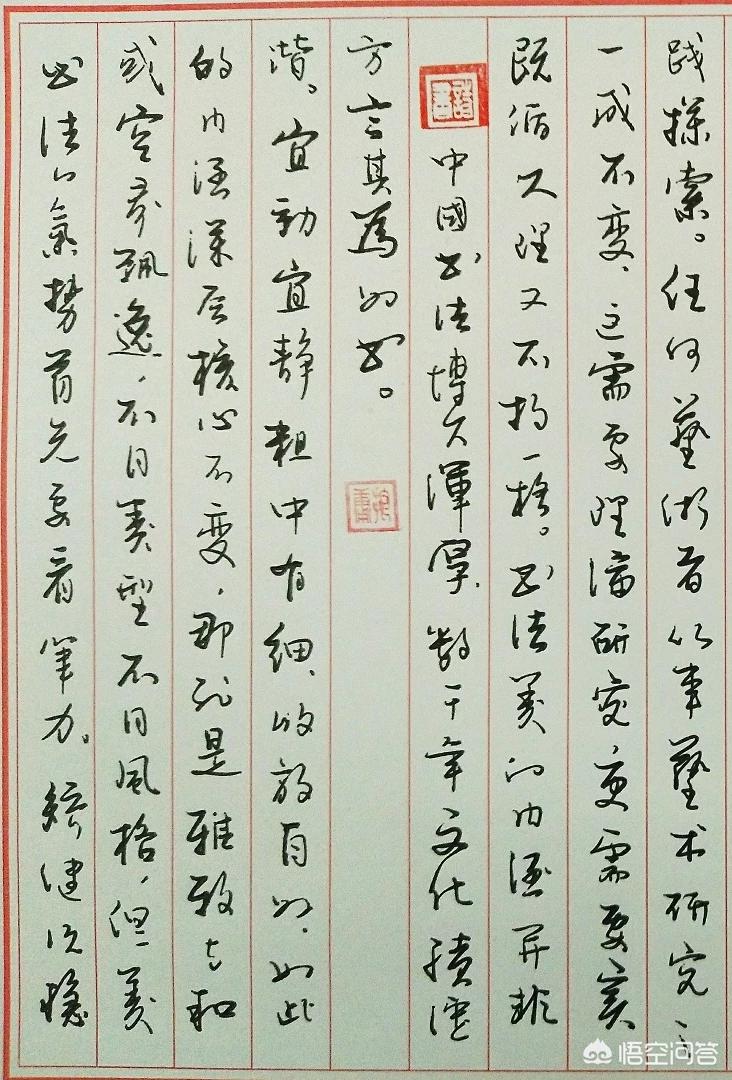 书法的氣势首先要看笔力。矫健沉稳
或空灵飘逸，不同类型不同风格，但美
的内涵深层核心不变，那就是雅致与和
谐。宜動宜静粗中有细、收放自如，如此
方言其為书。
中國书法博大渾厚，数千年文化積淀
既循天理又不拘一格。书法美的内涵并非
一成不变、这需要理论研究更需要实
践探索。任何藝術者从事藝术研究
悟空问答